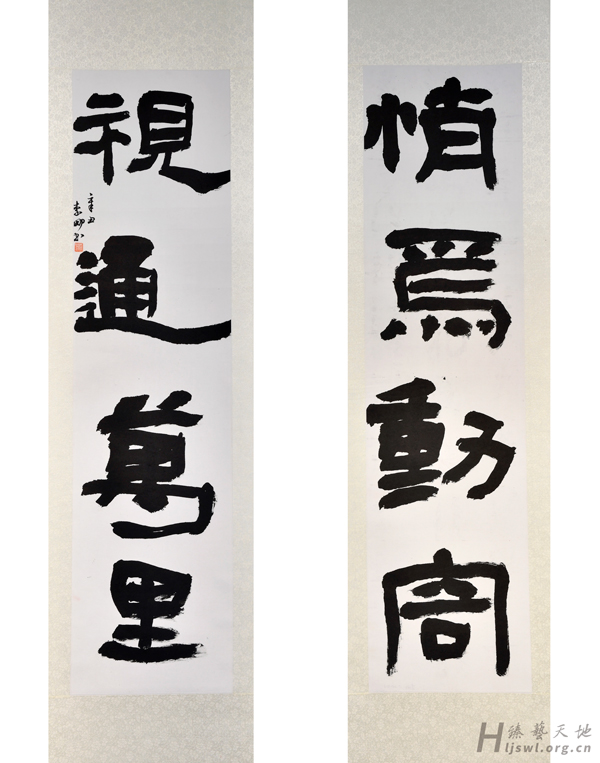 悄焉動容
視通萬里
辛丑
臻藝天地
Hljswl.org.cn